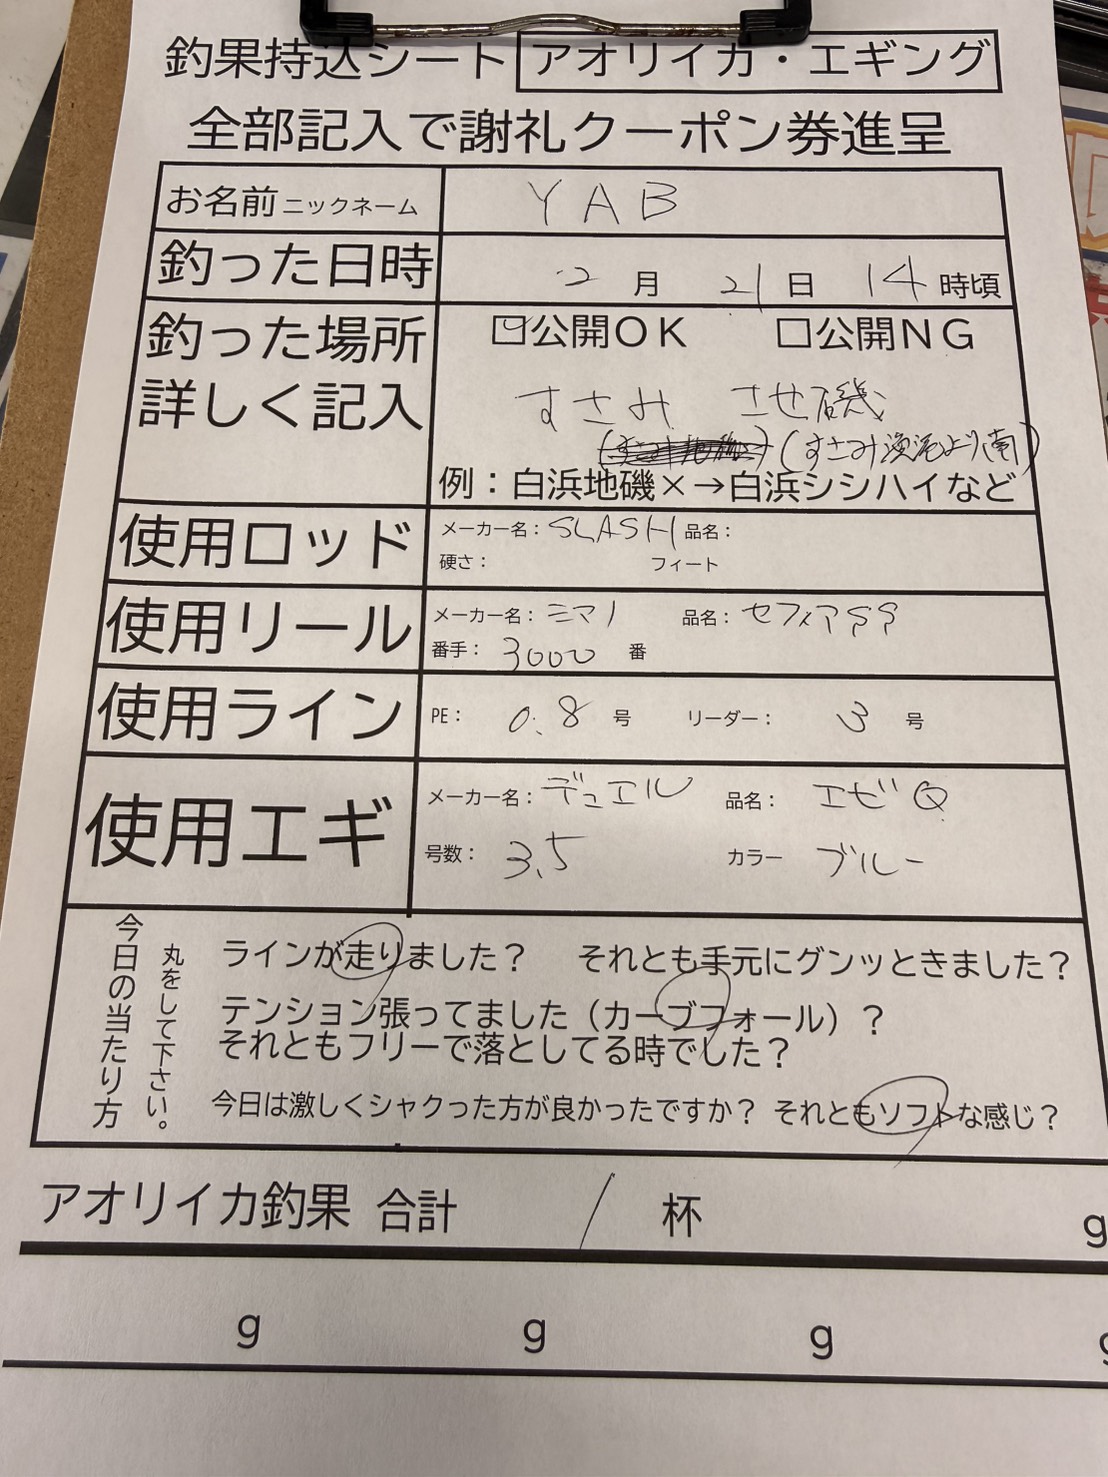 釣果持込シート アオリイカ・エギング
全部記入で謝礼クーポン券進呈
お名前 ニックネーム YAB
釣った日時 2月 21日 14時頃
釣った場所 ☑公開OK □公開NG
詳しく記入 すさみ させ磯
(すさみ漁港より南)
例：白浜地磯×→白浜シシハイなど
使用ロッド メーカー名：SLASH 品名：
硬さ： フィート
使用リール メーカー名：シマノ 品名：セフィアSS
番手： 3000 番
使用ライン PE： 0.8 号 リーダー： 3 号
使用エギ メーカー名：デュエル 品名： エゼQ
号数： 3.5 カラー ブルー
今日の当たり方
丸をして下さい。
ラインが走りました？ それとも手元にグンッときました？
テンション張ってました（カーブフォール）？
それともフリーで落としてる時でした？
今日は激しくシャクった方が良かったですか？ それともソフトな感じ？
アオリイカ釣果 合計 1 杯 g
g g g g